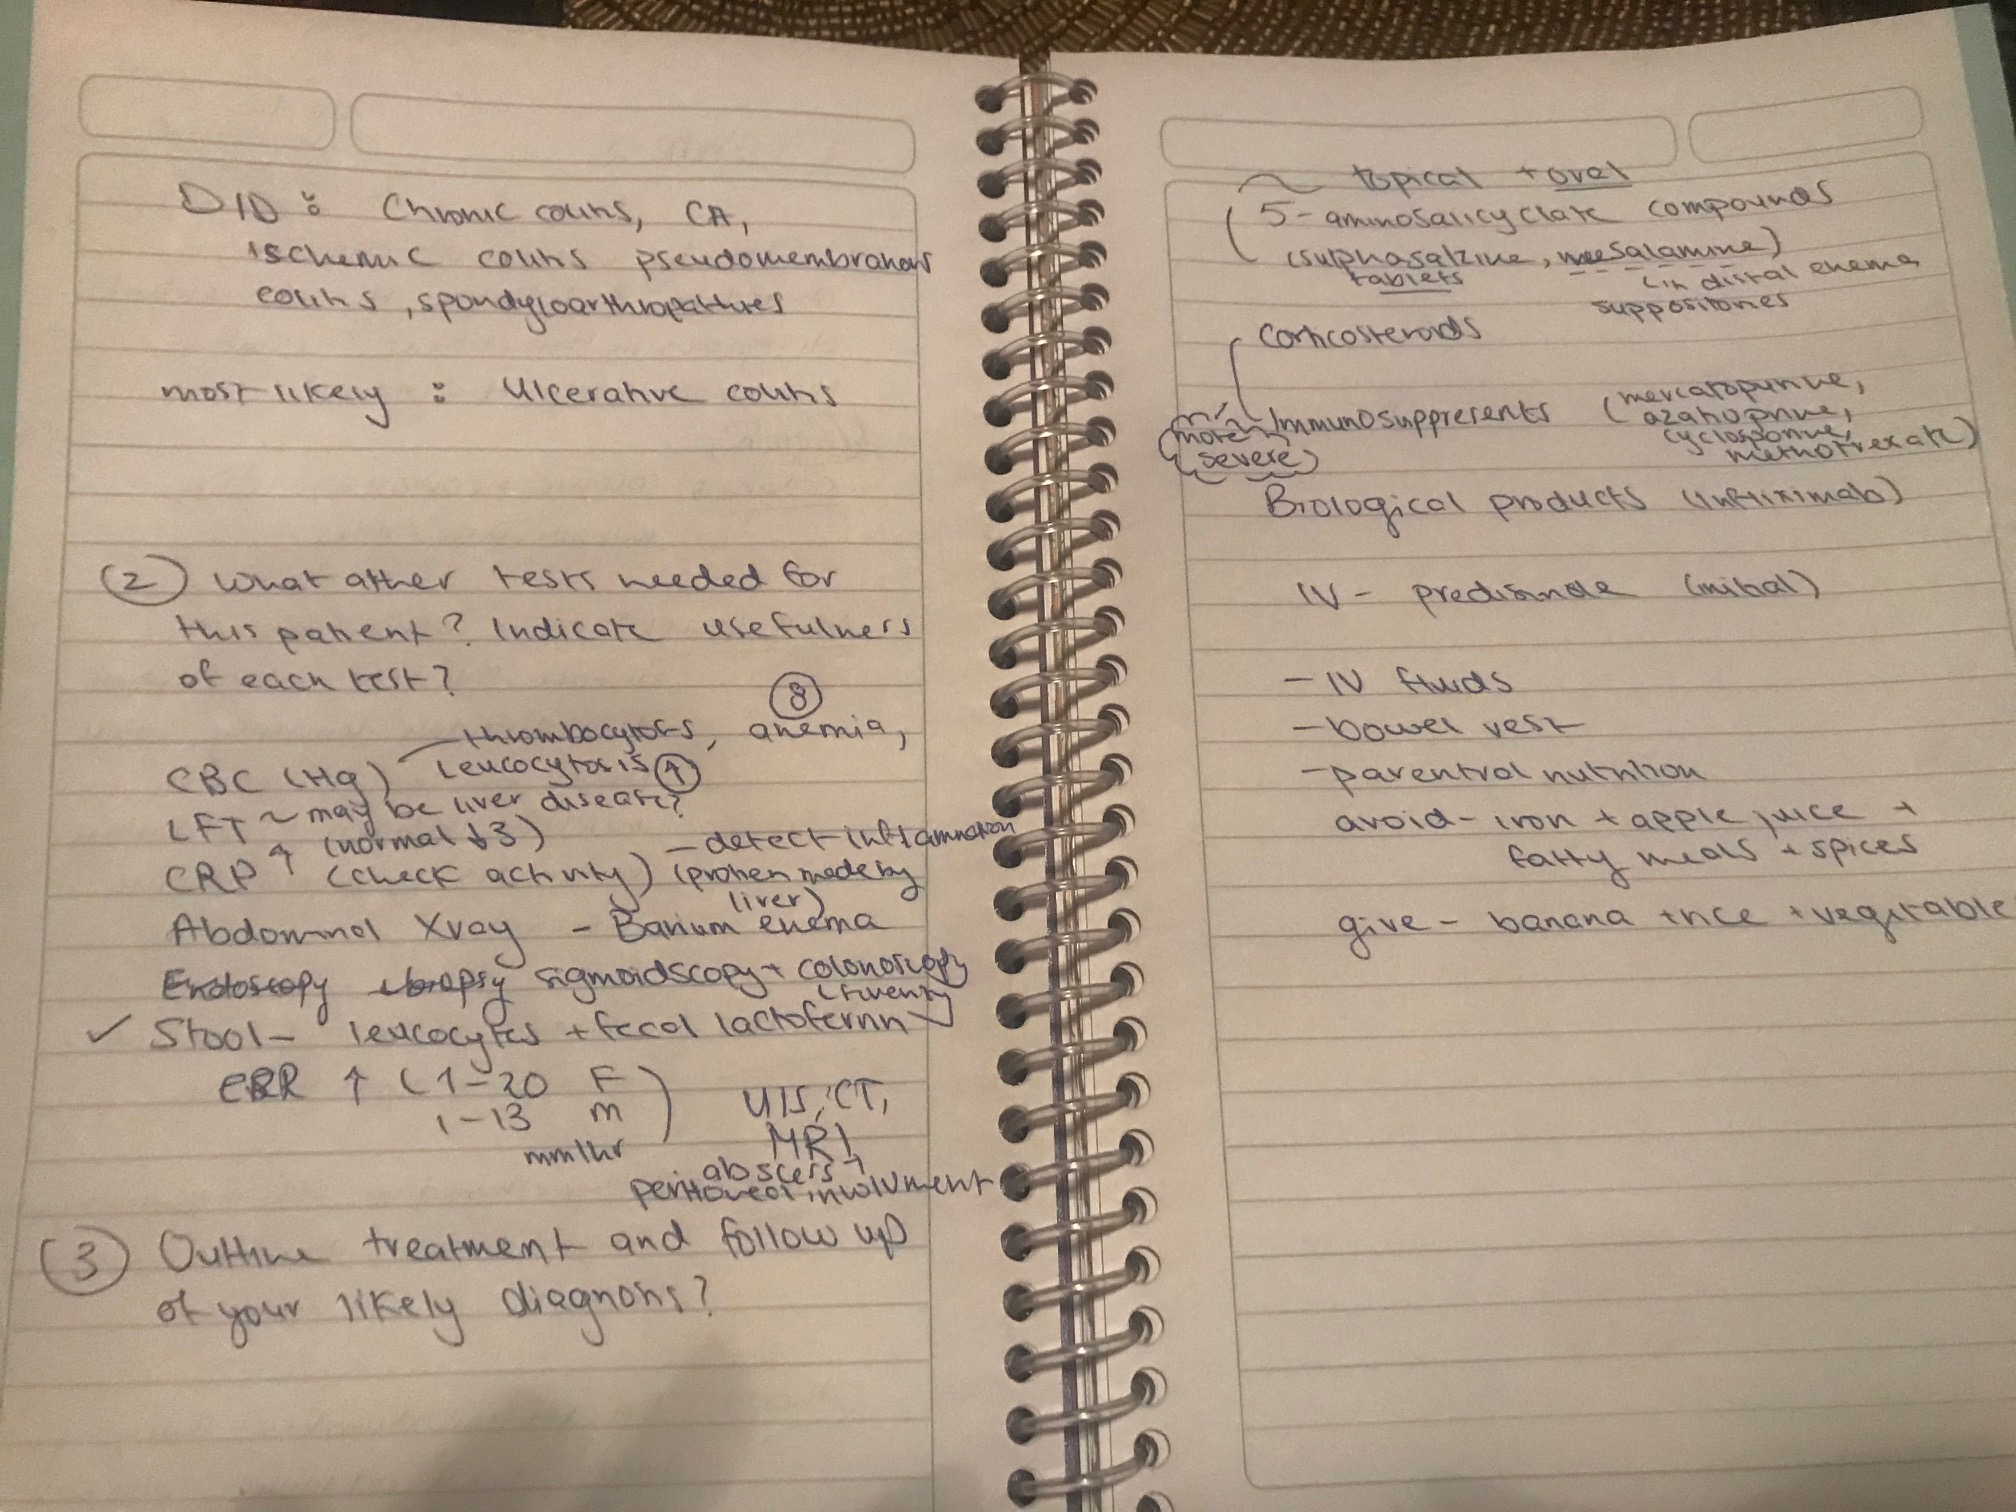 D/D : Chronic colitis, CA,
ischemic colitis pseudomembranous
colitis, spondyloarthropathies
most likely : Ulcerative colitis
(2) What other tests needed for
this patient? Indicate usefulness
of each test?
8
thrombocytosis, anemia,
CBC (Hg) leucocytosis ↑
LFT ~ may be liver disease?
(normal ↓3)
CRP ↑ (check activity) - detect inflammation
(protien made by
liver)
Abdominal Xray - Barium enema
Endoscopy + biopsy sigmoidscopy + colonoscopy
✓ Stool - leucocytes + fecal lactoferrin
ESR ↑ (1-20 F
1-13 m)
mm/hr
U/S, CT,
MRI
abscess +
peritoneal involvment
(3) Outline treatment and follow up
of your likely diagnosis?
~ topical + oral
5-aminosalicyclate compounds
(sulphasalzine, mesalamine)
tablets
(in distal enema,
suppositories
Corticosteroids
more
severe
Immunosuppresents (mercatopurine,
azathoprine,
cyclosporine,
methotrexate)
Biological products (infliximab)
IV - predisinole (initial)
- IV fluids
- bowel rest
- parentral nutrition
avoid - iron + apple juice +
fatty meals + spices
give - banana + rice + vegitable